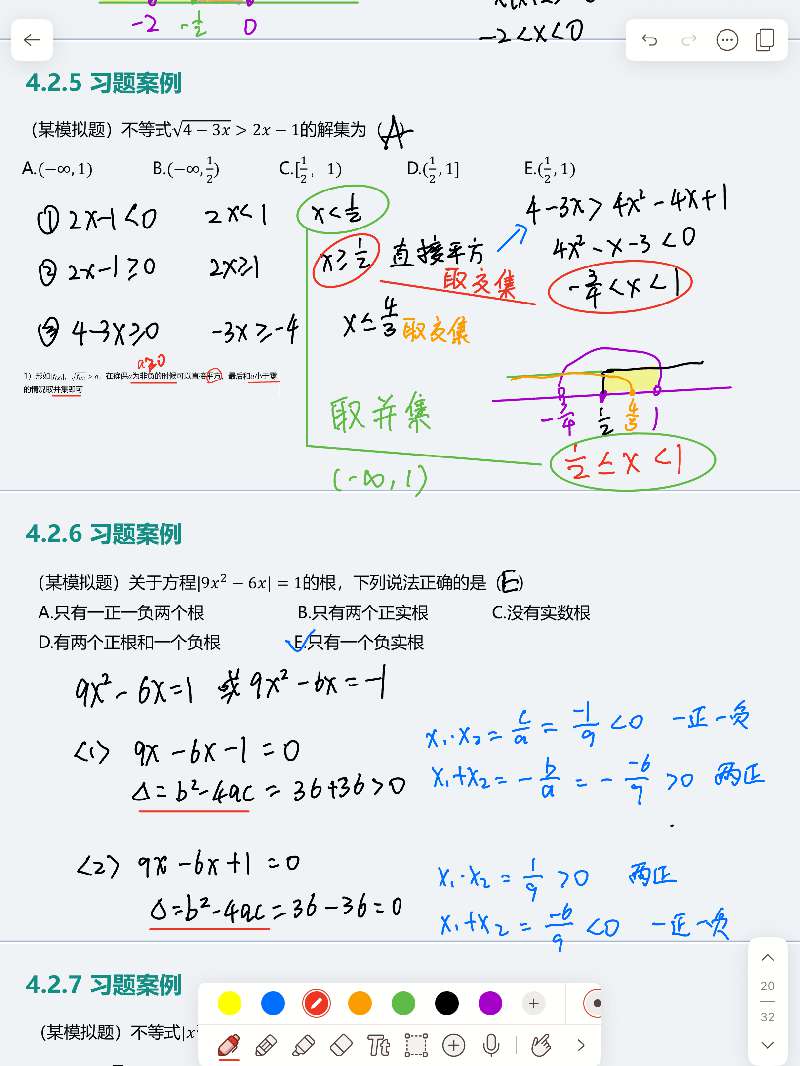 -2 -1/2 0
-2<x<0
4.2.5 习题案例
（某模拟题）不等式√(4−3x) > 2x − 1的解集为（A）
A.(−∞, 1) B.(−∞, 1/2) C.[1/2, 1) D.(1/2, 1] E.(1/2, 1)
① 2x-1<0 2x<1 x<1/2
4-3x>4x²-4x+1
② 2x-1≥0 2x≥1 x≥1/2 直接平方
4x²-x-3<0
取交集 -3/4<x<1
③ 4-3x≥0 -3x≥-4 x≤4/3 取交集
a≥0
的情况取并集即可
取并集
-3/4 1/2 4/3 1
1/2≤x<1
(-∞,1)
4.2.6 习题案例
（某模拟题）关于方程|9x² − 6x| = 1的根，下列说法正确的是（E）
A.只有一正一负两个根 B.只有两个正实根 C.没有实数根
D.有两个正根和一个负根 E.只有一个负实根
9x²-6x=1 或 9x²-6x=-1
<1> 9x-6x-1=0
Δ=b²-4ac=36+36>0
x₁·x₂=c/a=-1/9<0 一正一负
x₁+x₂=-b/a=--6/9>0 两正
<2> 9x-6x+1=0
Δ=b²-4ac=36-36=0
x₁·x₂=1/9>0 两正
x₁+x₂=-6/9<0 一正一负
4.2.7 习题案例
（某模拟题）不等式|x
Tt
20
32